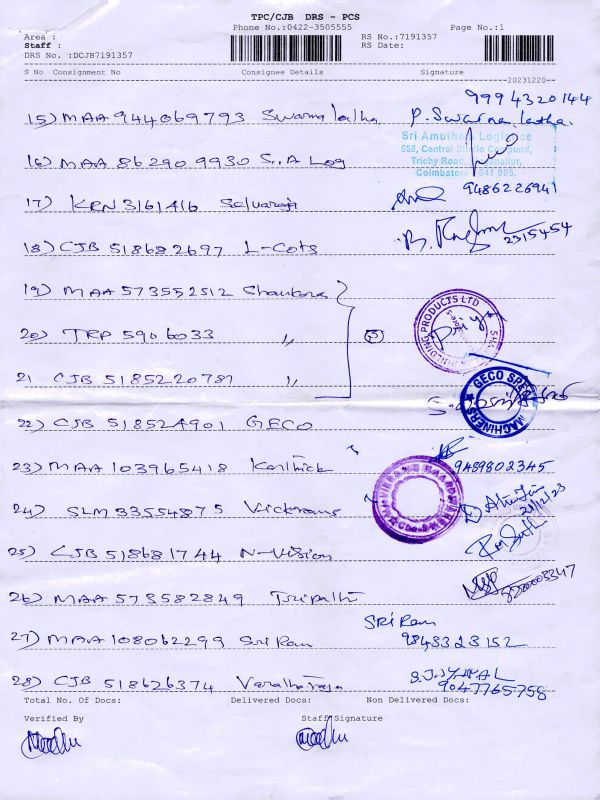 TPC/CJB DRS - PCS
Phone No.:0422-3505555 Page No.:1
Area :
Staff :
DRS No. :DCJB7191357
RS No.:7191357
RS Date:
S No Consignment No Consignee Details Signature
20231220
9994320144
15) MAA 944069793 Swarna latha P. Swarna latha.
Sri Amutham Logistics
658, Central Studio Compound,
Trichy Road,
Coimbatore 641 005.
16) MAA 862909930 S.A Log
9486226941
17) KRN 3161416 Selvaraja
18) CJB 518682697 L-Cots
2315454
19) MAA 573552512 Shankara
BUILDING PRODUCTS LTD
20) TRP 5906033 "
21 CJB 518522078 "
GECO SPE
MACHINERS
22) CJB 518524901 GECO
23) MAA 103965418 Karthick 9489802345
24) SLM 33554875 Vickrams
21/12/23
25) CJB 518681744 N-Vision
26) MAA 573582849 Tripathi
Sri Ram
27) MAA 108062299 Sri Ram 9843323152
S.J.JYPAL
28) CJB 518626374 Varatharaja 9047765758
Total No. Of Docs: Delivered Docs: Non Delivered Docs:
Verified By Staff Signature